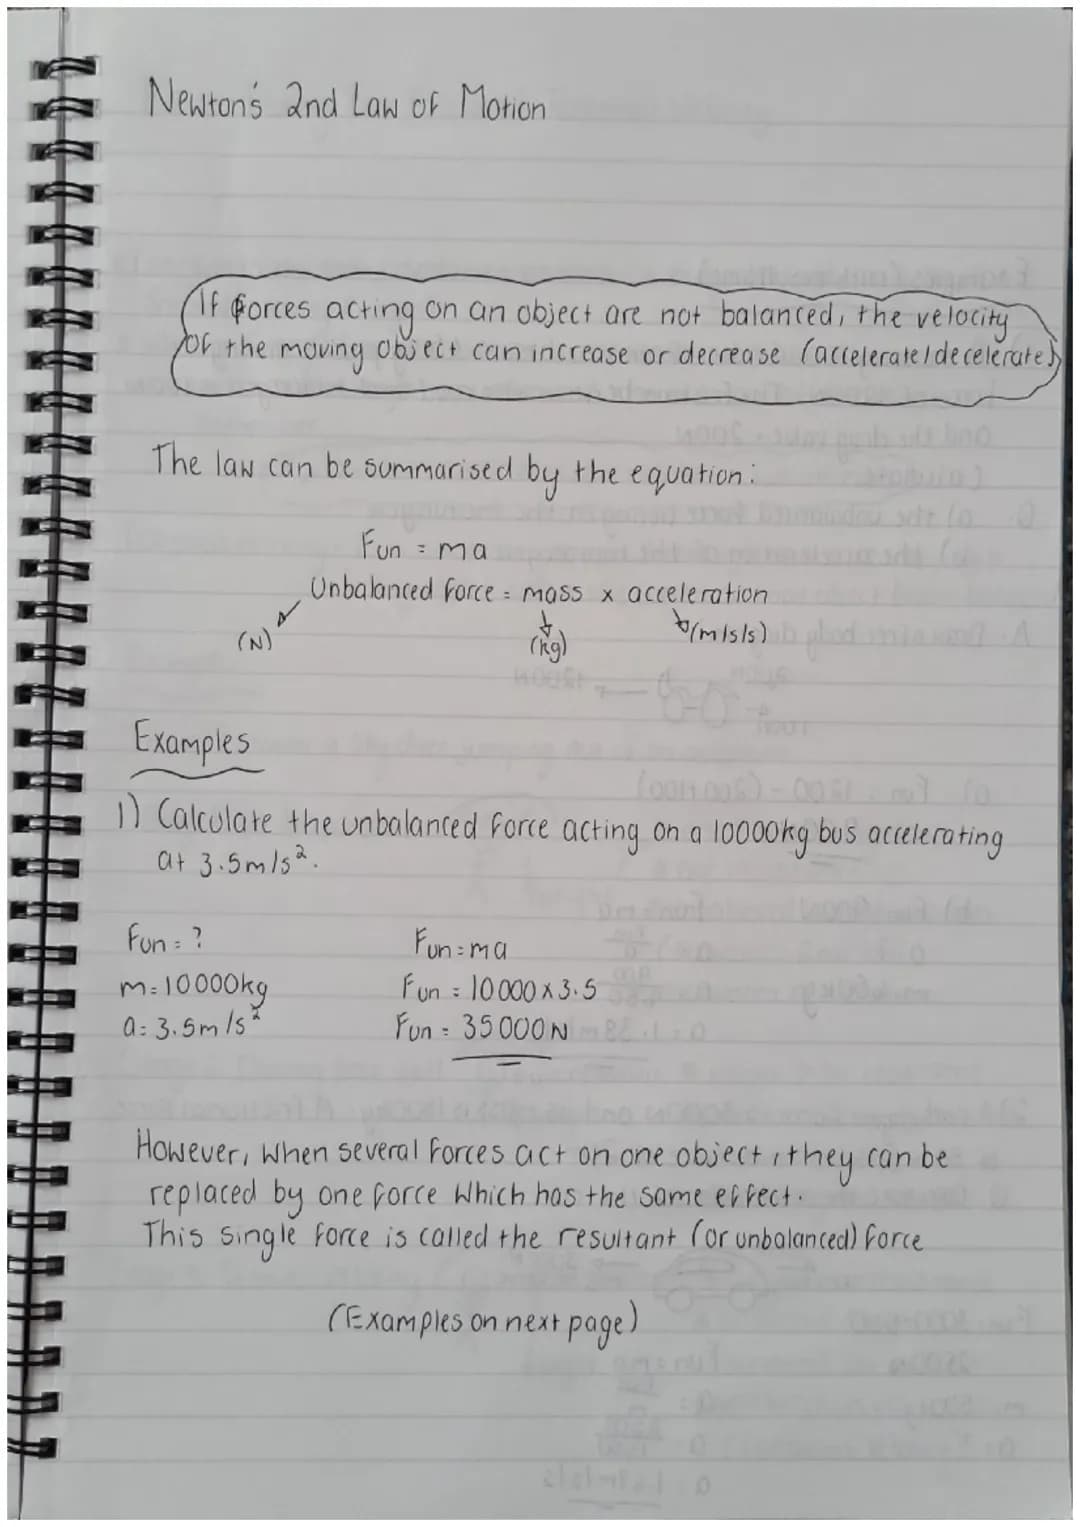 Newton's 2nd Law of Motion
If forces acting on an object are not balanced, the velocity
of the moving object can increase or decrease (accelerate/decelerate)
The law can be summarised by the equation:
Fun = ma
Unbalanced Force = mass x acceleration
(N) (kg) (m/s/s)
Examples
1) Calculate the unbalanced force acting on a 10000kg bus accelerating
at 3.5m/s².
Fun = ? Fun = ma
m = 10000kg Fun = 10000 x 3.5
a = 3.5m/s² Fun = 35000N
However, when several forces act on one object, they can be
replaced by one force which has the same effect.
This single force is called the resultant (or unbalanced) force
(Examples on next page)